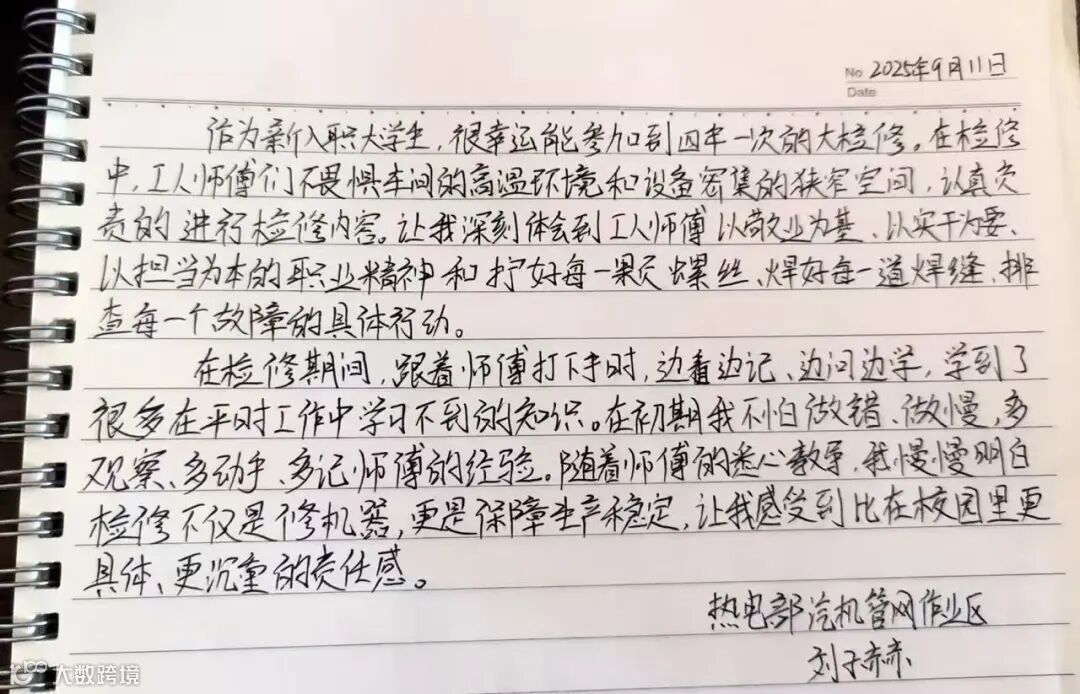 No 2025年9月11日
Date
作为新入职大学生，很幸运能参加到四年一次的大检修。在检修
中，工人师傅们不畏惧车间的高温环境和设备密集的狭窄空间，认真负
责的进行检修内容。让我深刻体会到工人师傅以敬业为基、以实干为要、
以担当为本的职业精神和拧好每一颗螺丝、焊好每一道焊缝、排
查每一个故障的具体行动。
在检修期间，跟着师傅打下手时，边看边记、边问边学，学到了
很多在平时工作中学习不到的知识。在初期我不怕做错、做慢，多
观察、多动手、多记师傅的经验。随着师傅的悉心教导，我慢慢明白
检修不仅是修机器，更是保障生产稳定，让我感受到比在校园里更
具体、更沉重的责任感。
热电部汽机管网作业区
刘子赫
大数跨境